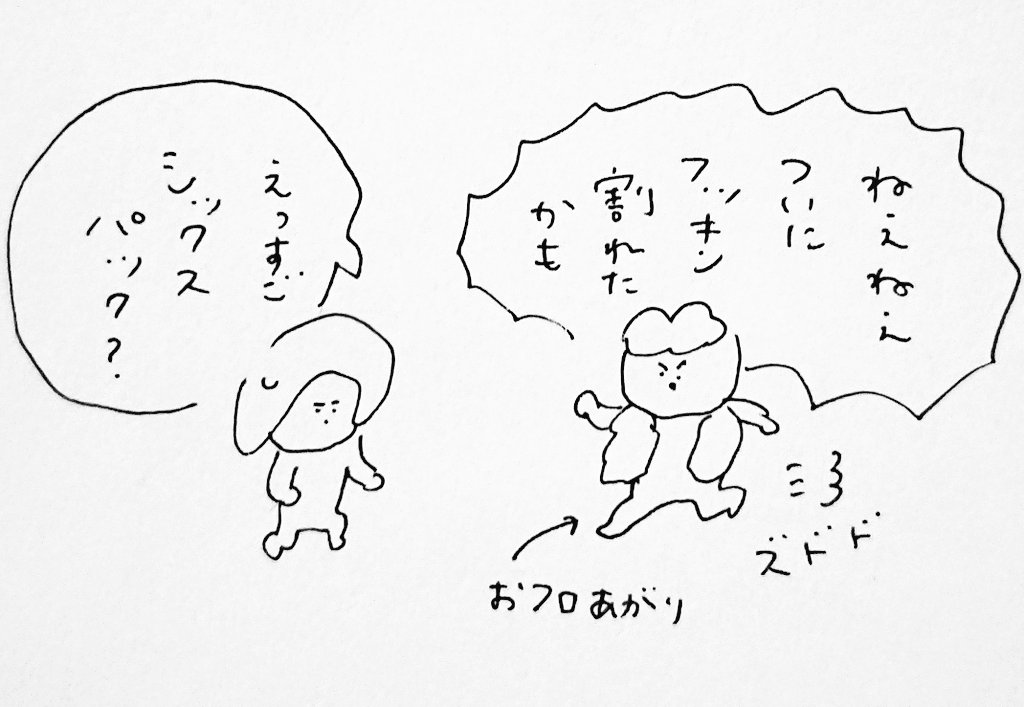 ねぇねぇ
ついに
フッキン
割れた
かも
えっすご
シックス
パック?
おフロあがり
ズドド